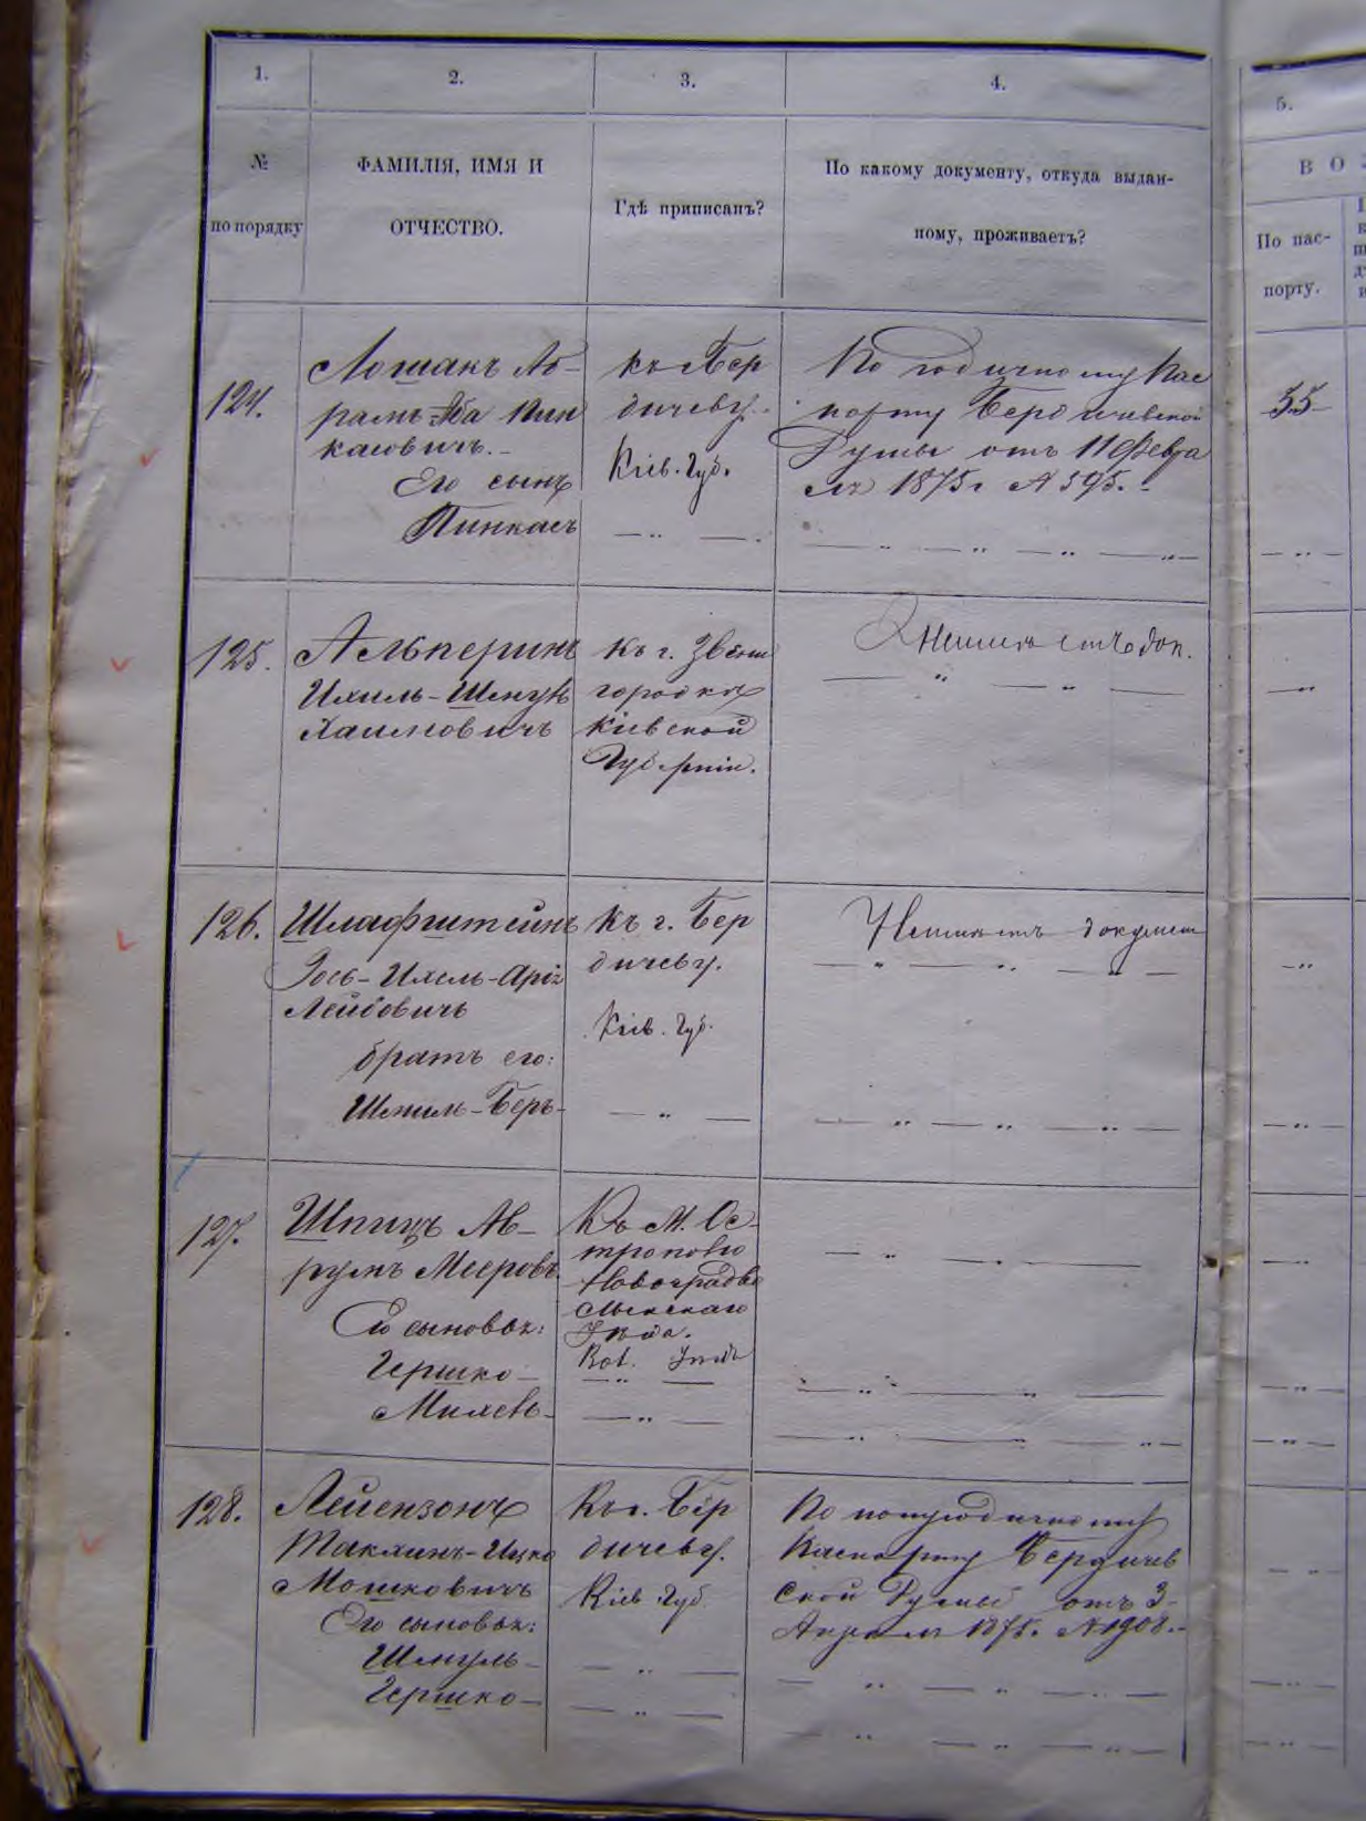 1.
2.
3.
4.
5.
№
по порядку
ФАМИЛІЯ, ИМЯ И
ОТЧЕСТВО.
Гдѣ приписанъ?
По какому документу, откуда выдан-
ному, проживаетъ?
В О
По пас-
порту.
124.
Лошакъ Аб-
рамъ-Аба Пин
касовичъ.
Его сынъ
Пинкасъ
къ Бер
дичеву.
Кіев. Губ.
По годичному Пас
порту Бердичевской
Думы отъ 11 Февра
ля 1875 г № 595.
55
125.
Альперинъ
Ихиль-Шмуль
Хаимовичъ
къ г. Звени
городкѣ
Кіевской
Губерніи.
Неимѣетъ док.
126.
Шлафштейнъ
Іось-Ихель-Аріе
Лейбовичъ
братъ его:
Шмиль-Беръ-
къ г. Бер
дичеву.
Кіев. Губ.
Неимѣетъ документ
127.
Шпицъ Ав-
румъ Мееровъ.
Его сыновья:
Гершко-
Михель-
Къ М. Ос-
трополю
Новоградво
лынскаго
Уѣзда.
128.
Лейензонъ
Мошковичъ
Его сыновья:
Шмуль-
Гершко-
Къ г. Бер
дичеву.
Кіев. Губ
По полугодичному
Паспорту Бердичев
ской Думы отъ 3-
Апреля 1875. № 1908.-